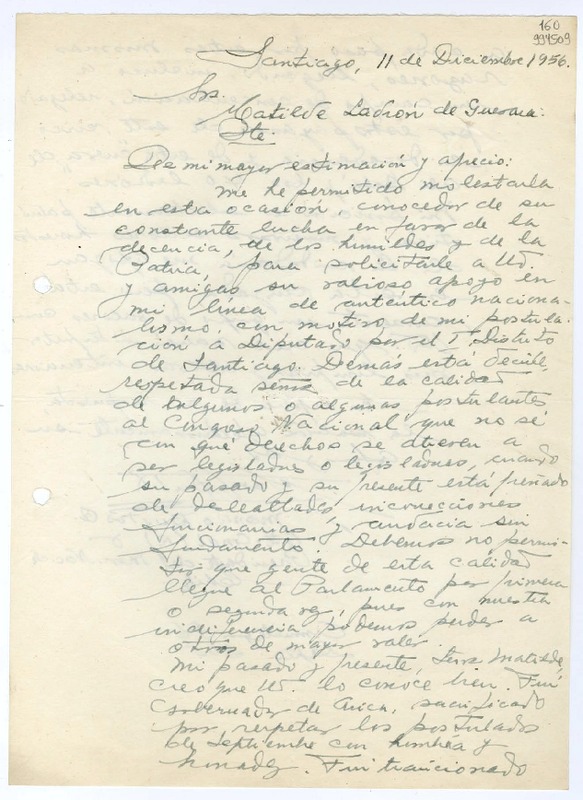 160
994509
Santiago, 11 de Diciembre 1956.
Sra
Matilde Ladrón de Guevara.
Pte.
De mi mayor estimación y aprecio:
me he permitido molestarla
en esta ocasión conocedor de su
constante lucha en favor de la
decencia, de los humildes y de la
Patria, para solicitarle a Ud.
y amigas su valioso apoyo en
mi línea de auténtico naciona-
lismo, con motivo de mi postula-
ción a Diputado por el 1er Distrito
de Santiago. Demás está decirle,
respetada señora de la calidad
de algunos o algunas postulantes
al Congreso Nacional que no sé
con qué derechos se atreven a
ser legisladores o legisladores, cuando
su pasado y su presente está preñado
de deslealtades, incorrecciones
funcionarias y audacia sin
fundamento. Debemos no permi-
tir que gente de esta calidad
llegue al Parlamento por primera
o segunda vez, pues con nuestra
indiferencia podemos perder a
otros de mayor valer.
Mi pasado y presente, Sra. Matilde,
creo que Ud. lo conoce bien. Fuí
Gobernador de Arica, sacrificado
por respetar los postulados
de Septiembre con hombría y
honradez. Fui traicionado